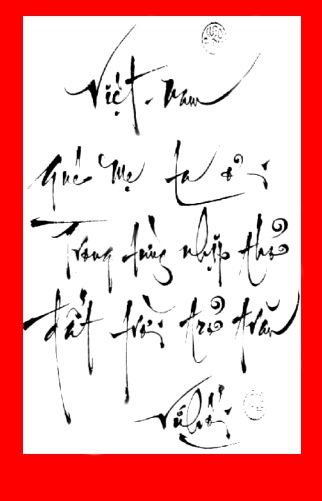 Việt-Nam
Quê Mẹ ta ơi
Trong từng nhịp thở
đất trời trở trăn
Vũ Hối